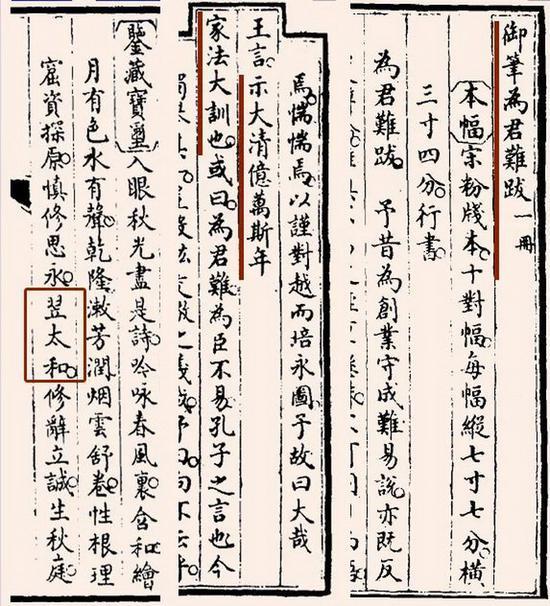 御筆為君難跋一冊
本幅宋粉牋本十對幅每幅縱七寸七分橫
三寸四分行書
為君難跋 予昔為創業守成難易說亦既反
焉惴惴焉以謹對越而培永圖予故曰大哉
王言示大清億萬斯年
家法大訓也或曰為君難為臣不易孔子之言也今
鑒藏寶璽入眼秋光盡是詩吟咏春風裏含和繪
月有色水有聲乾隆漱芳潤烟雲舒卷性根理
窟資探原慎修思永翌太和修辭立誠生秋庭